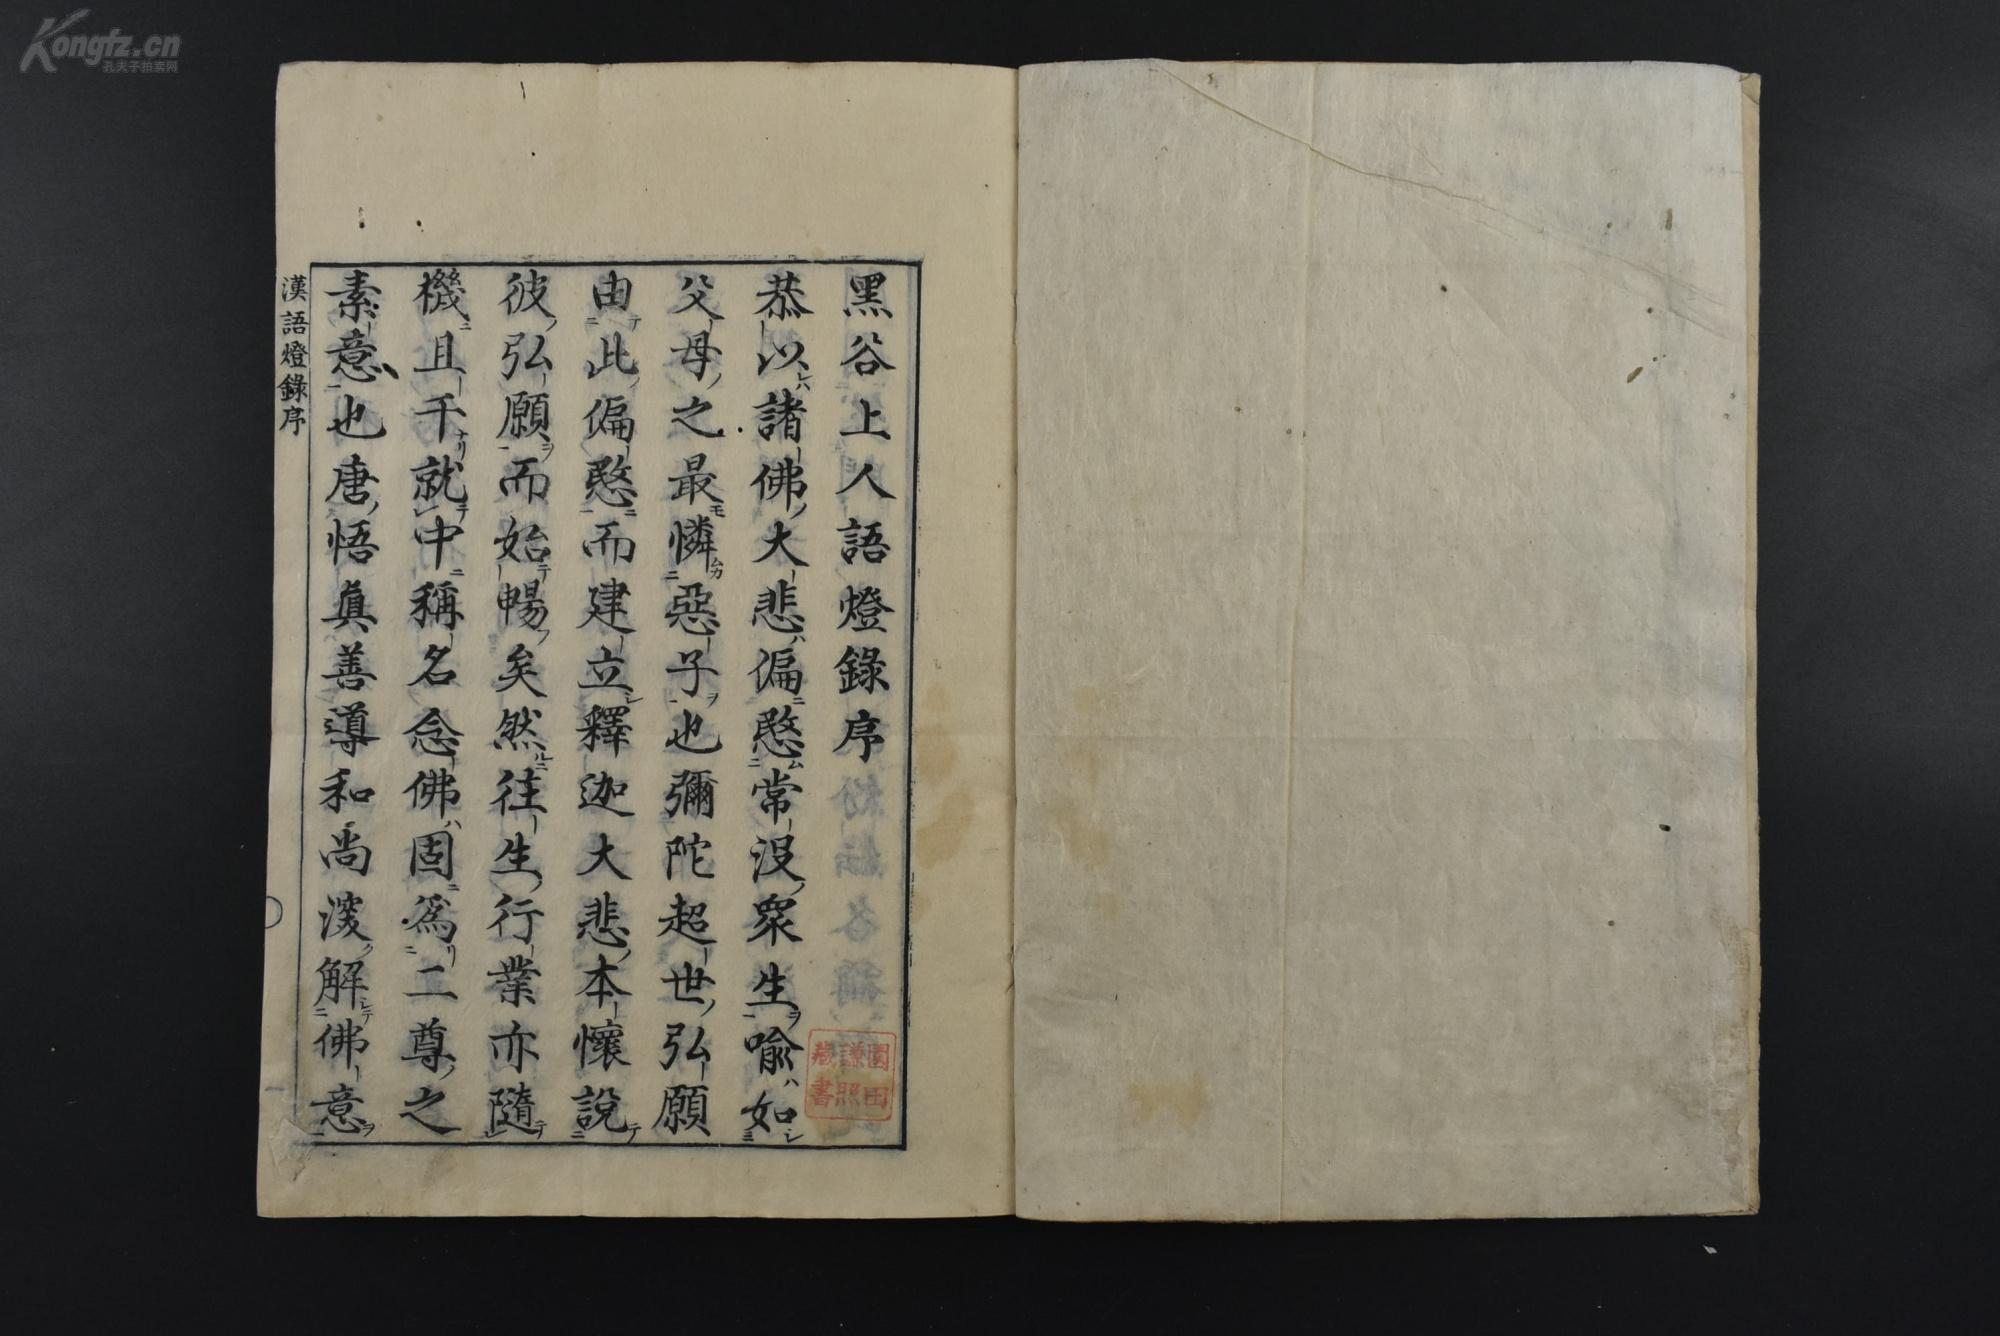 黑谷上人語燈錄序
恭以諸佛大悲偏愍常沒衆生喻如
父母之最憐惡子也彌陀超世弘願
由此偏愍而建立釋迦大悲本懷說
彼弘願而始暢矣然往生行業亦隨
機且千就中稱名念佛固爲二尊之
素意也唐悟眞善導和尚深解佛意
漢語燈錄序
園田
謙照
藏書
Kongfz.cn
孔夫子拍卖网